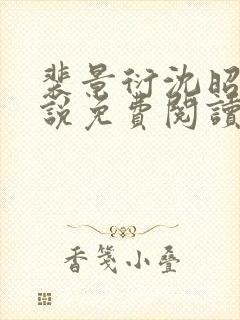 裴景衍沈昭
說免費閱讀
香箋小疊